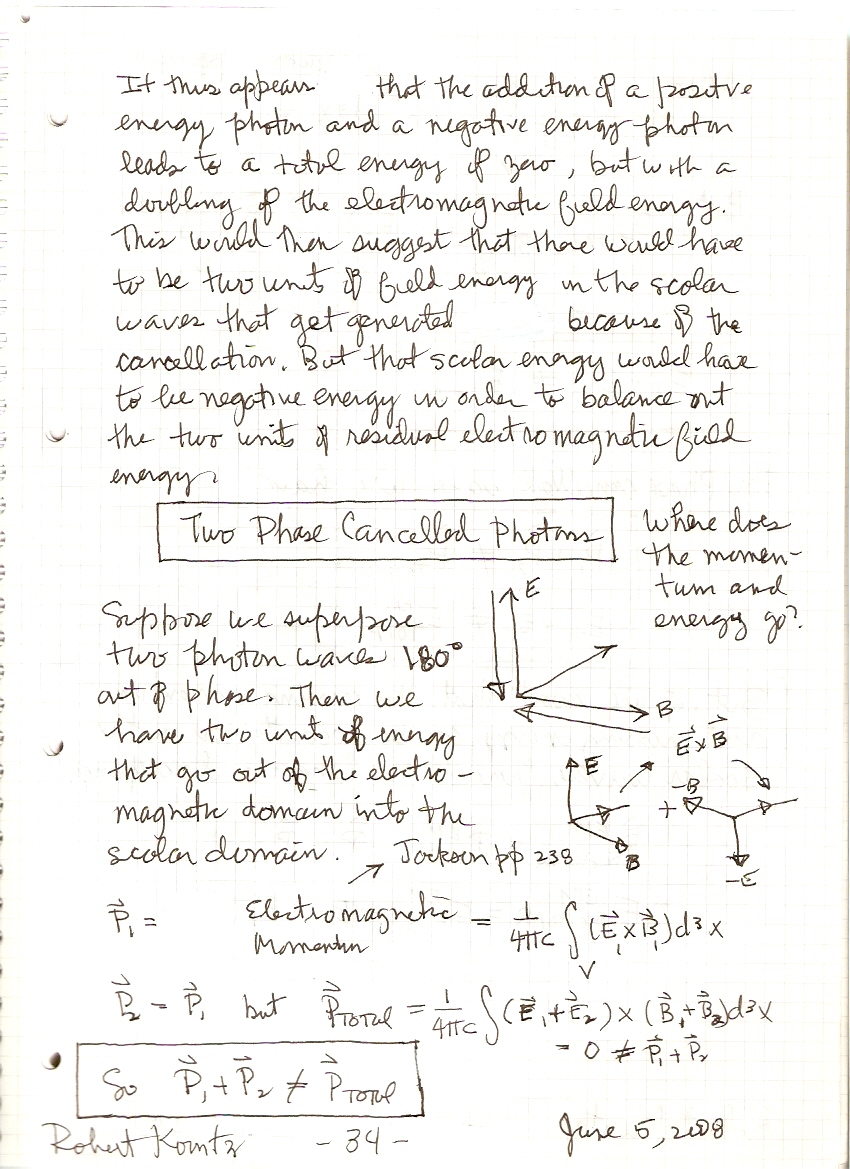 It thus appears that the addition of a positve
energy photon and a negative energy photon
leads to a total energy of zero, but with a
doubling of the electromagnetic field energy.
This would then suggest that there would have
to be two units of field energy in the scalar
waves that get generated because of the
cancellation. But that scalar energy would have
to be negative energy in order to balance out
the two units of residual electromagnetic field
energy.
Two Phase Cancelled Photons
Where does
the momen-
tum and
energy go?
Suppose we superpose
two photon waves 180°
out of phase. Then we
have two units of energy
that go out of the electro-
magnetic domain into the
scalar domain.
E
B
E⃗ x B⃗
E
B
+
-B
-E
Jackson pp 238
P⃗₁ = Electromagnetic Momentum = 1/4πc ∫V (E⃗₁ x B⃗₁) d³x
P⃗₂ = P⃗₁ but P⃗TOTAL = 1/4πc ∫ (E⃗₁ + E⃗₂) x (B⃗₁ + B⃗₂) d³x
= 0 ≠ P⃗₁ + P⃗₂
So P⃗₁ + P⃗₂ ≠ P⃗TOTAL
Robert Koontz - 34 - June 5, 2008